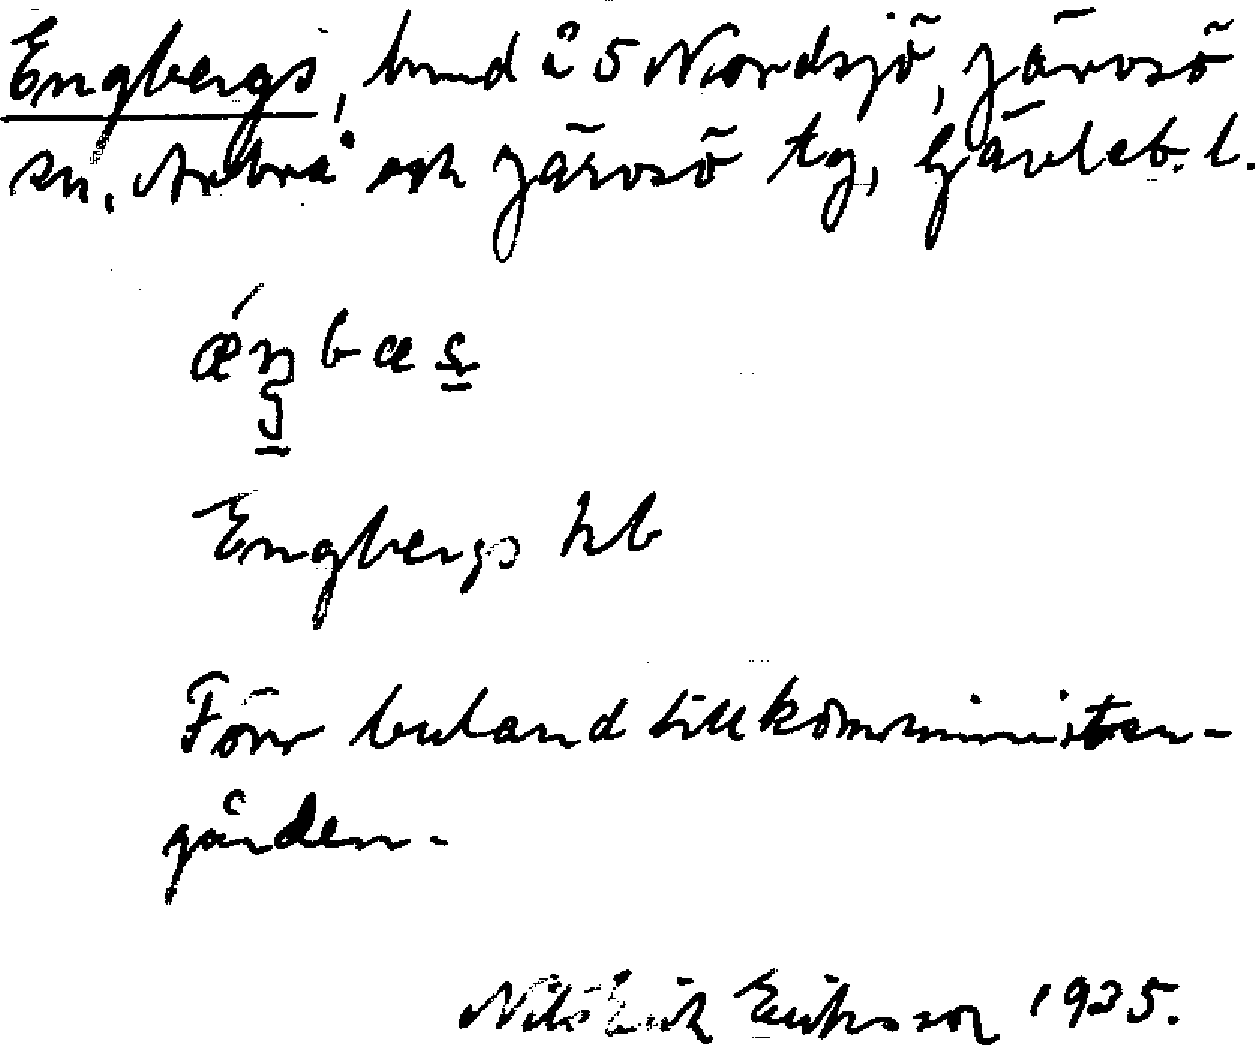 Engbergs, bmd å 5 Nordsjö, Järvsö
sn, Arbrå och Järvsö tg, Gävleb. l.
Engbergs hb
Förr buland till komminister-
gården.
Nils Erik Eriksson 1935.